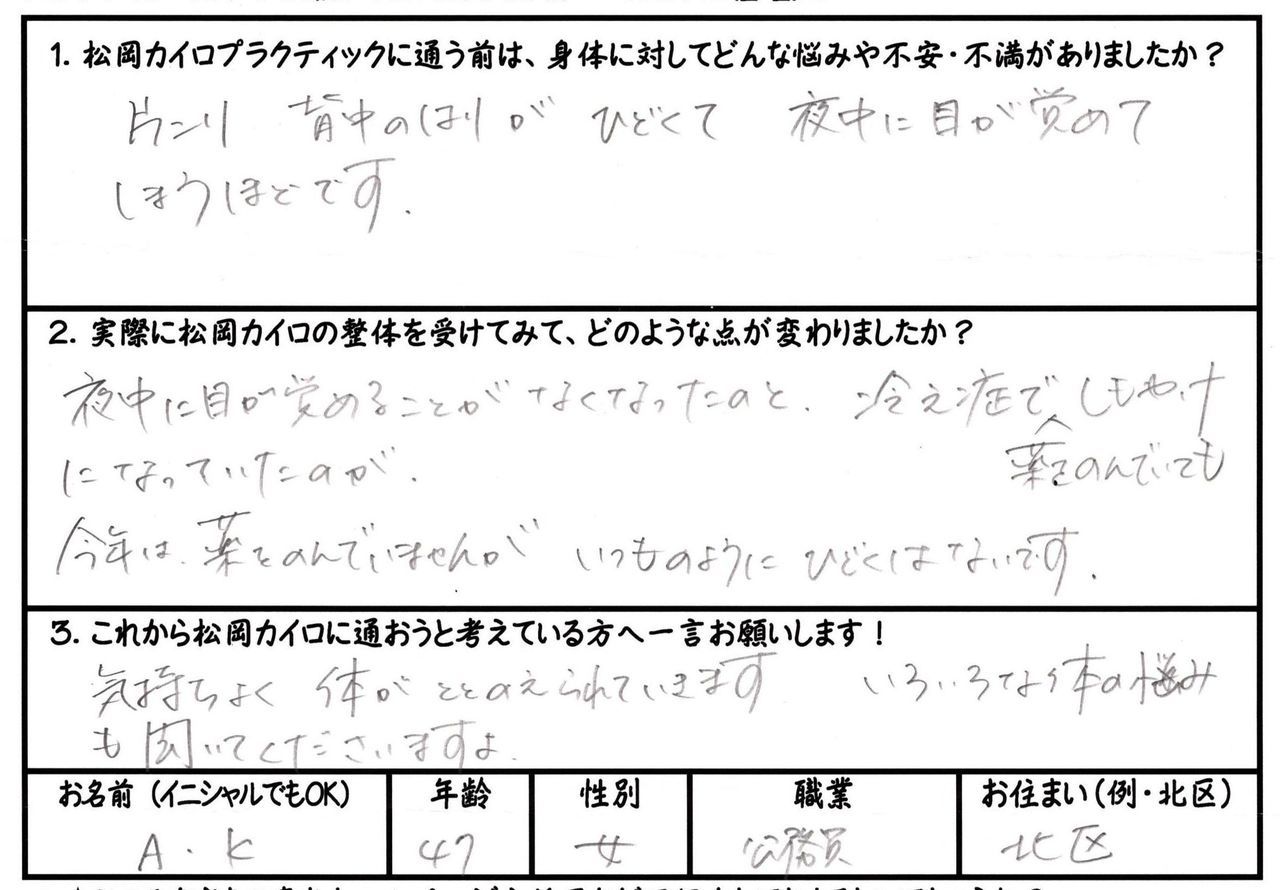 1. 松岡カイロプラクティックに通う前は、身体に対してどんな悩みや不安・不満がありましたか？
背中のはりが ひどくて 夜中に目が覚めて
しまうほどです.
2. 実際に松岡カイロの整体を受けてみて、どのような点が変わりましたか？
夜中に目が覚めることが なくなったのと、冷え症で しもやけ
薬をのんでいても
になっていたのが、
今年は、薬をのんでいませんが いつものように ひどくはないです.
3. これから松岡カイロに通おうと考えている方へ一言お願いします！
気持ちよく 体が ととのえられていきます いろいろな体の悩み
も 聞いてくださいますよ.
お名前（イニシャルでもOK） 年齢 性別 職業 お住まい（例・北区）
A . K 47 女 公務員 北区